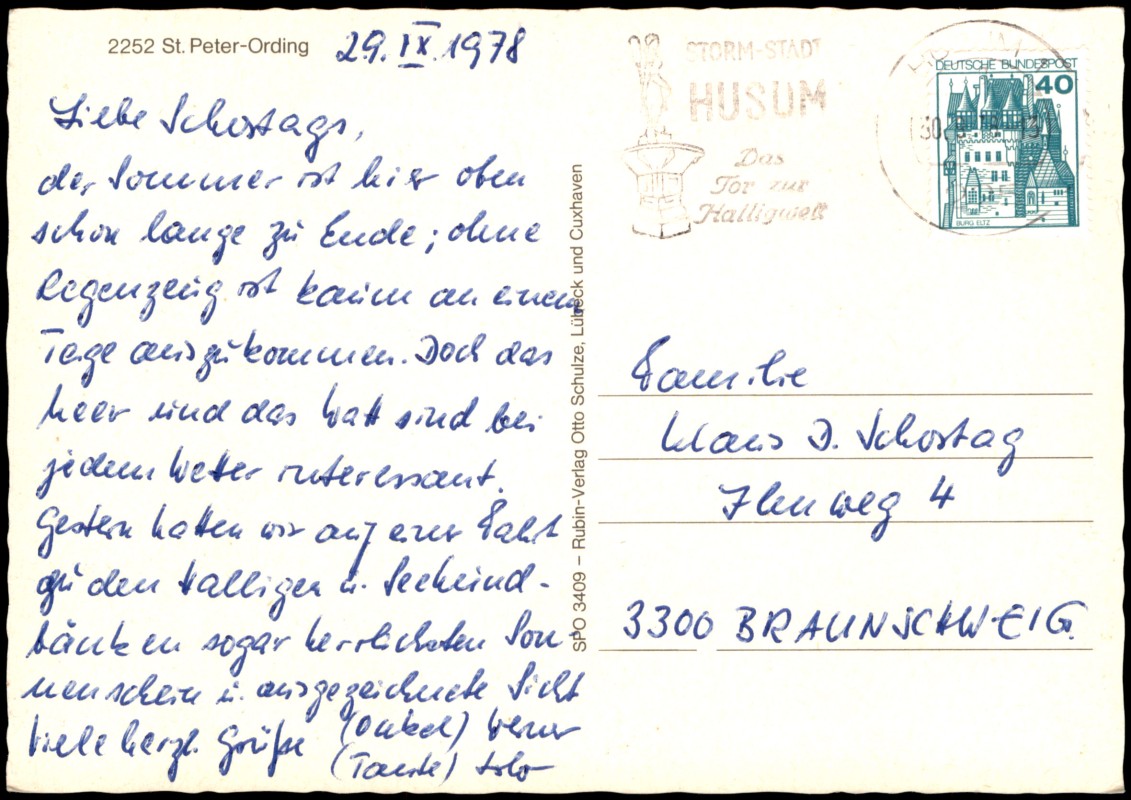 2252 St. Peter-Ording
29. IX. 1978
Liebe Schostags,
der Sommer ist hier oben
schon lange zu Ende; ohne
Regenzeug ist kaum an einem
Tage auszukommen. Doch das
Meer und das Watt sind bei
jedem Wetter interessant.
Gestern hatten wir auf einer Fahrt
zu den Halligen u. Seehund-
bänken sogar herrlichsten Son
nenschein u. ausgezeichnete Sicht
Viele herzl. Grüße (Onkel) Werner
(Tante)
SPO 3409 – Rubin-Verlag Otto Schulze, Lübeck und Cuxhaven
STORM-STADT
HUSUM
Das
Tor zur
Halligwelt
DEUTSCHE BUNDESPOST
40
BURG ELTZ
Familie
Klaus D. Schostag
Ilmweg 4
3300 BRAUNSCHWEIG